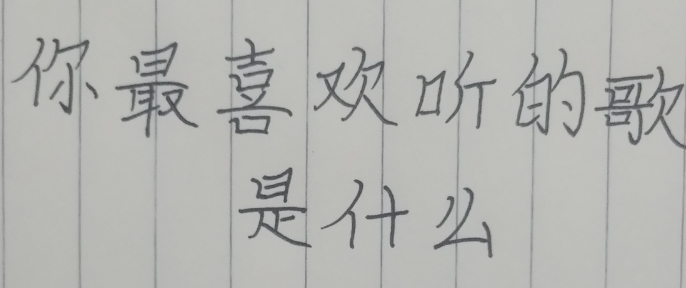 你最喜欢听的歌
是什么